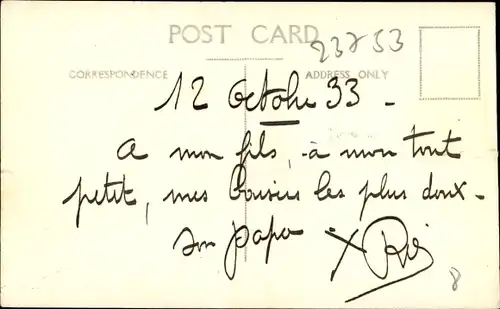 POST CARD
23753
CORRESPONDENCE
ADDRESS ONLY
12 Octobre 33 -
A mon fils, à mon tout
petit, mes baisers les plus doux -
son papa
8